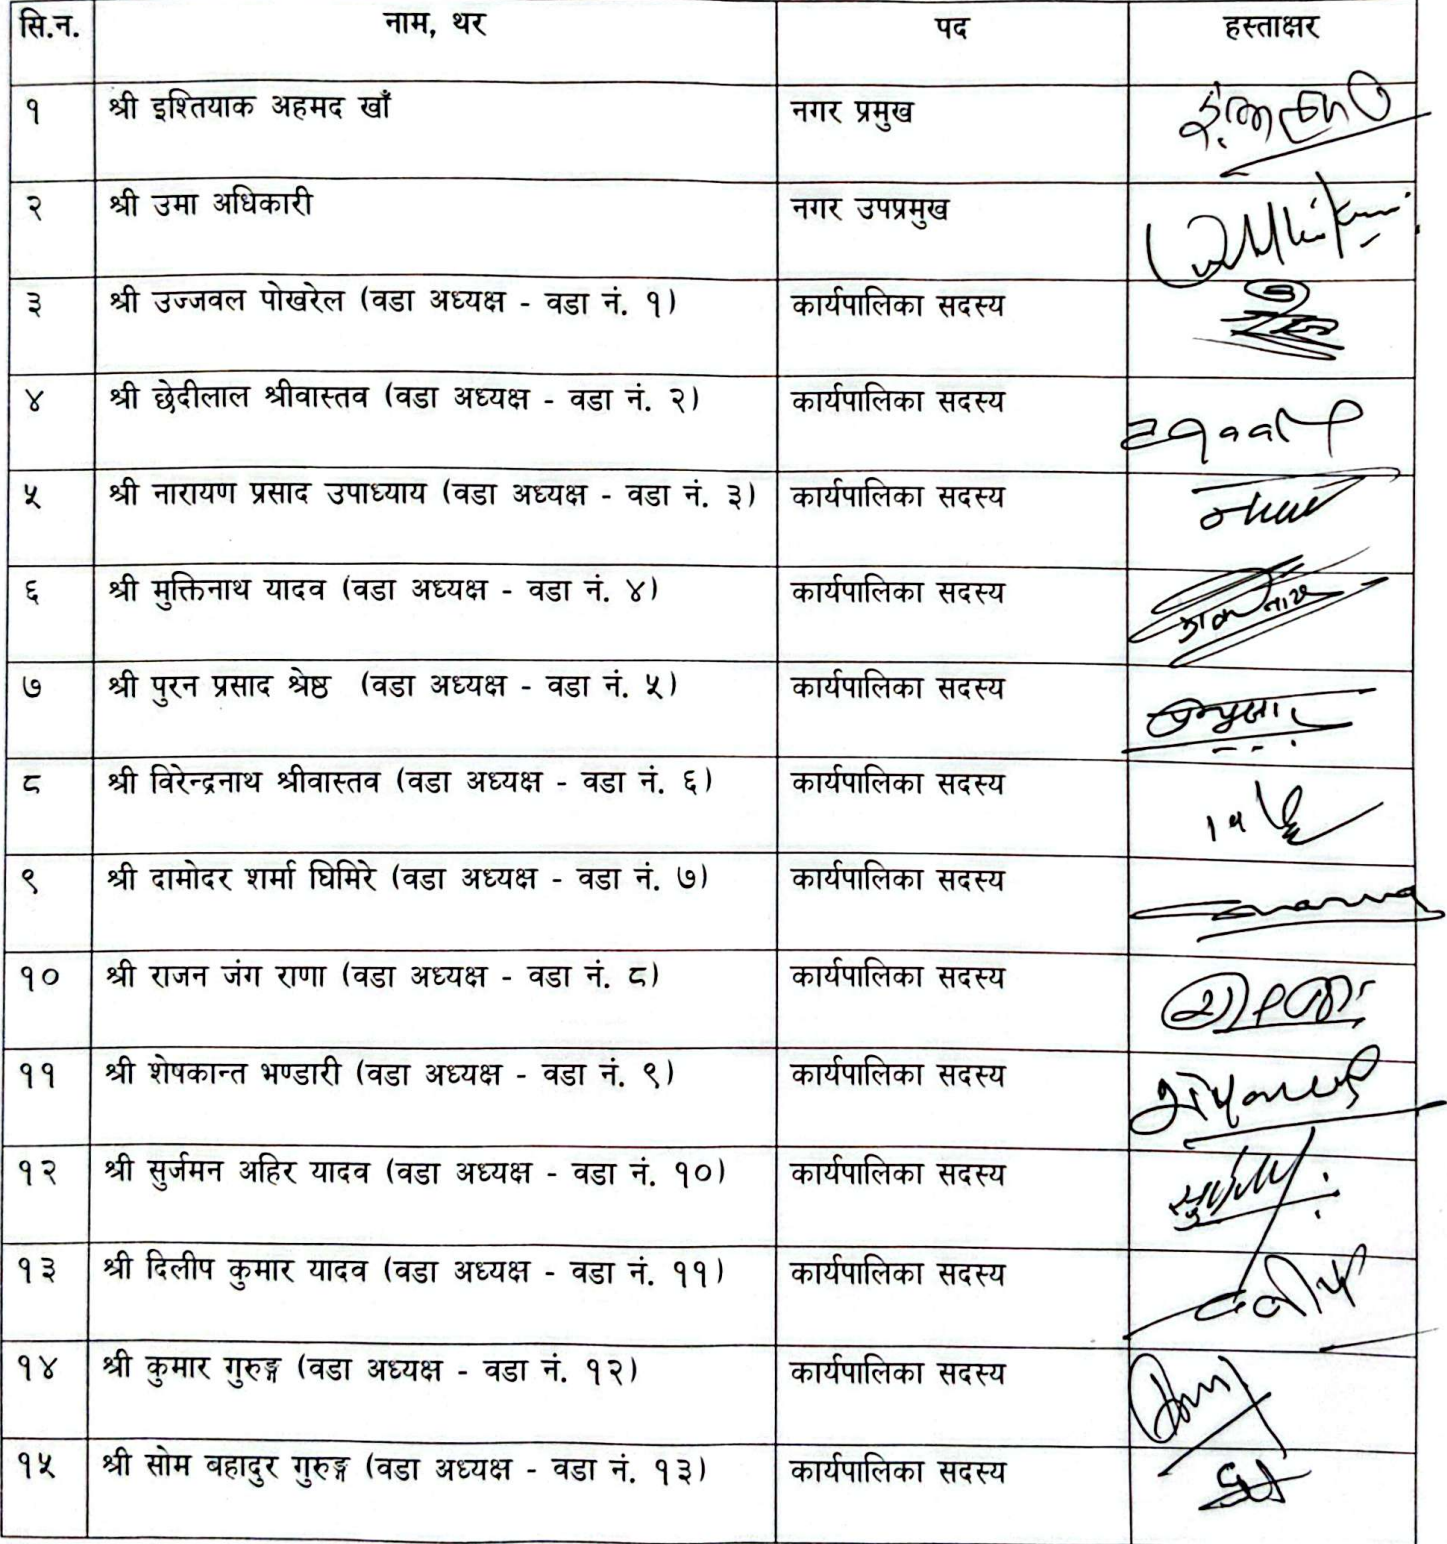 सि.न. नाम, थर पद हस्ताक्षर
१ श्री इश्तियाक अहमद खाँ नगर प्रमुख
२ श्री उमा अधिकारी नगर उपप्रमुख
३ श्री उज्जवल पोखरेल (वडा अध्यक्ष - वडा नं. १) कार्यपालिका सदस्य
४ श्री छेदीलाल श्रीवास्तव (वडा अध्यक्ष - वडा नं. २) कार्यपालिका सदस्य
५ श्री नारायण प्रसाद उपाध्याय (वडा अध्यक्ष - वडा नं. ३) कार्यपालिका सदस्य
६ श्री मुक्तिनाथ यादव (वडा अध्यक्ष - वडा नं. ४) कार्यपालिका सदस्य
७ श्री पुरन प्रसाद श्रेष्ठ (वडा अध्यक्ष - वडा नं. ५) कार्यपालिका सदस्य
८ श्री विरेन्द्रनाथ श्रीवास्तव (वडा अध्यक्ष - वडा नं. ६) कार्यपालिका सदस्य
९ श्री दामोदर शर्मा घिमिरे (वडा अध्यक्ष - वडा नं. ७) कार्यपालिका सदस्य
१० श्री राजन जंग राणा (वडा अध्यक्ष - वडा नं. ८) कार्यपालिका सदस्य
११ श्री शेषकान्त भण्डारी (वडा अध्यक्ष - वडा नं. ९) कार्यपालिका सदस्य
१२ श्री सुर्जमन अहिर यादव (वडा अध्यक्ष - वडा नं. १०) कार्यपालिका सदस्य
१३ श्री दिलीप कुमार यादव (वडा अध्यक्ष - वडा नं. ११) कार्यपालिका सदस्य
१४ श्री कुमार गुरुङ्ग (वडा अध्यक्ष - वडा नं. १२) कार्यपालिका सदस्य
१५ श्री सोम बहादुर गुरुङ्ग (वडा अध्यक्ष - वडा नं. १३) कार्यपालिका सदस्य